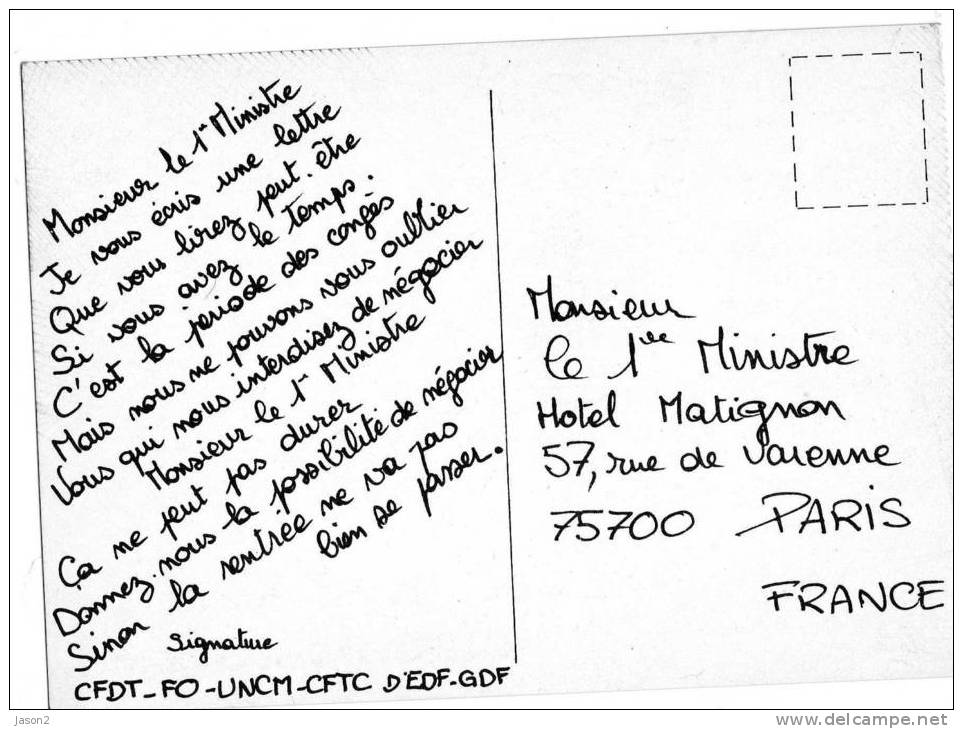 Monsieur le 1er Ministre
Je vous écris une lettre
Que vous lirez peut-être
Si vous avez le temps.
C'est la periode des congés
Mais nous ne pouvons vous oublier
Vous qui nous interdisez de négocier
Monsieur le 1er Ministre
Ça ne peut pas durer
Donnez-nous la possibilité de négocier
Sinon la rentrée ne va pas
bien se passer.
Signature
CFDT-FO-UNCM-CFTC D'EDF-GDF
Monsieur
le 1er Ministre
Hotel Matignon
57, rue de Varenne
75700 PARIS
FRANCE
Jason2
www.delcampe.net